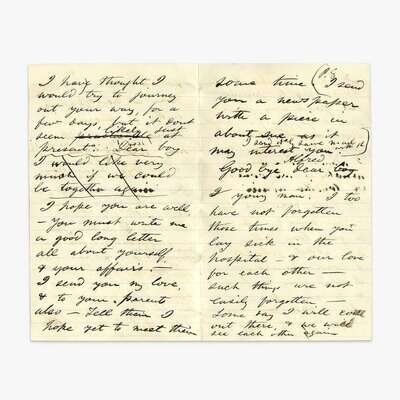 I have thought I
would try to journey
out your way, for a
few days, but it dont
seem likely just at
present. Dear boy
I would like very
much if we could
be together again
I hope you are well
– You must write me
a good long letter
all about yourself
& your affairs. –
I send you my love,
& to your parent
also – Tell them I
hope yet to meet them
some time (I send
you a newspaper
with a piece in
about me as it
I send it
may interest you)
Alfred
Good bye, dear boy
I your man. I too
have not forgotten
those times when you
lay sick in the
hospital – & our love
for each other –
such things are not
easily forgotten –
Some day I will come
out there, & we will
see each other again